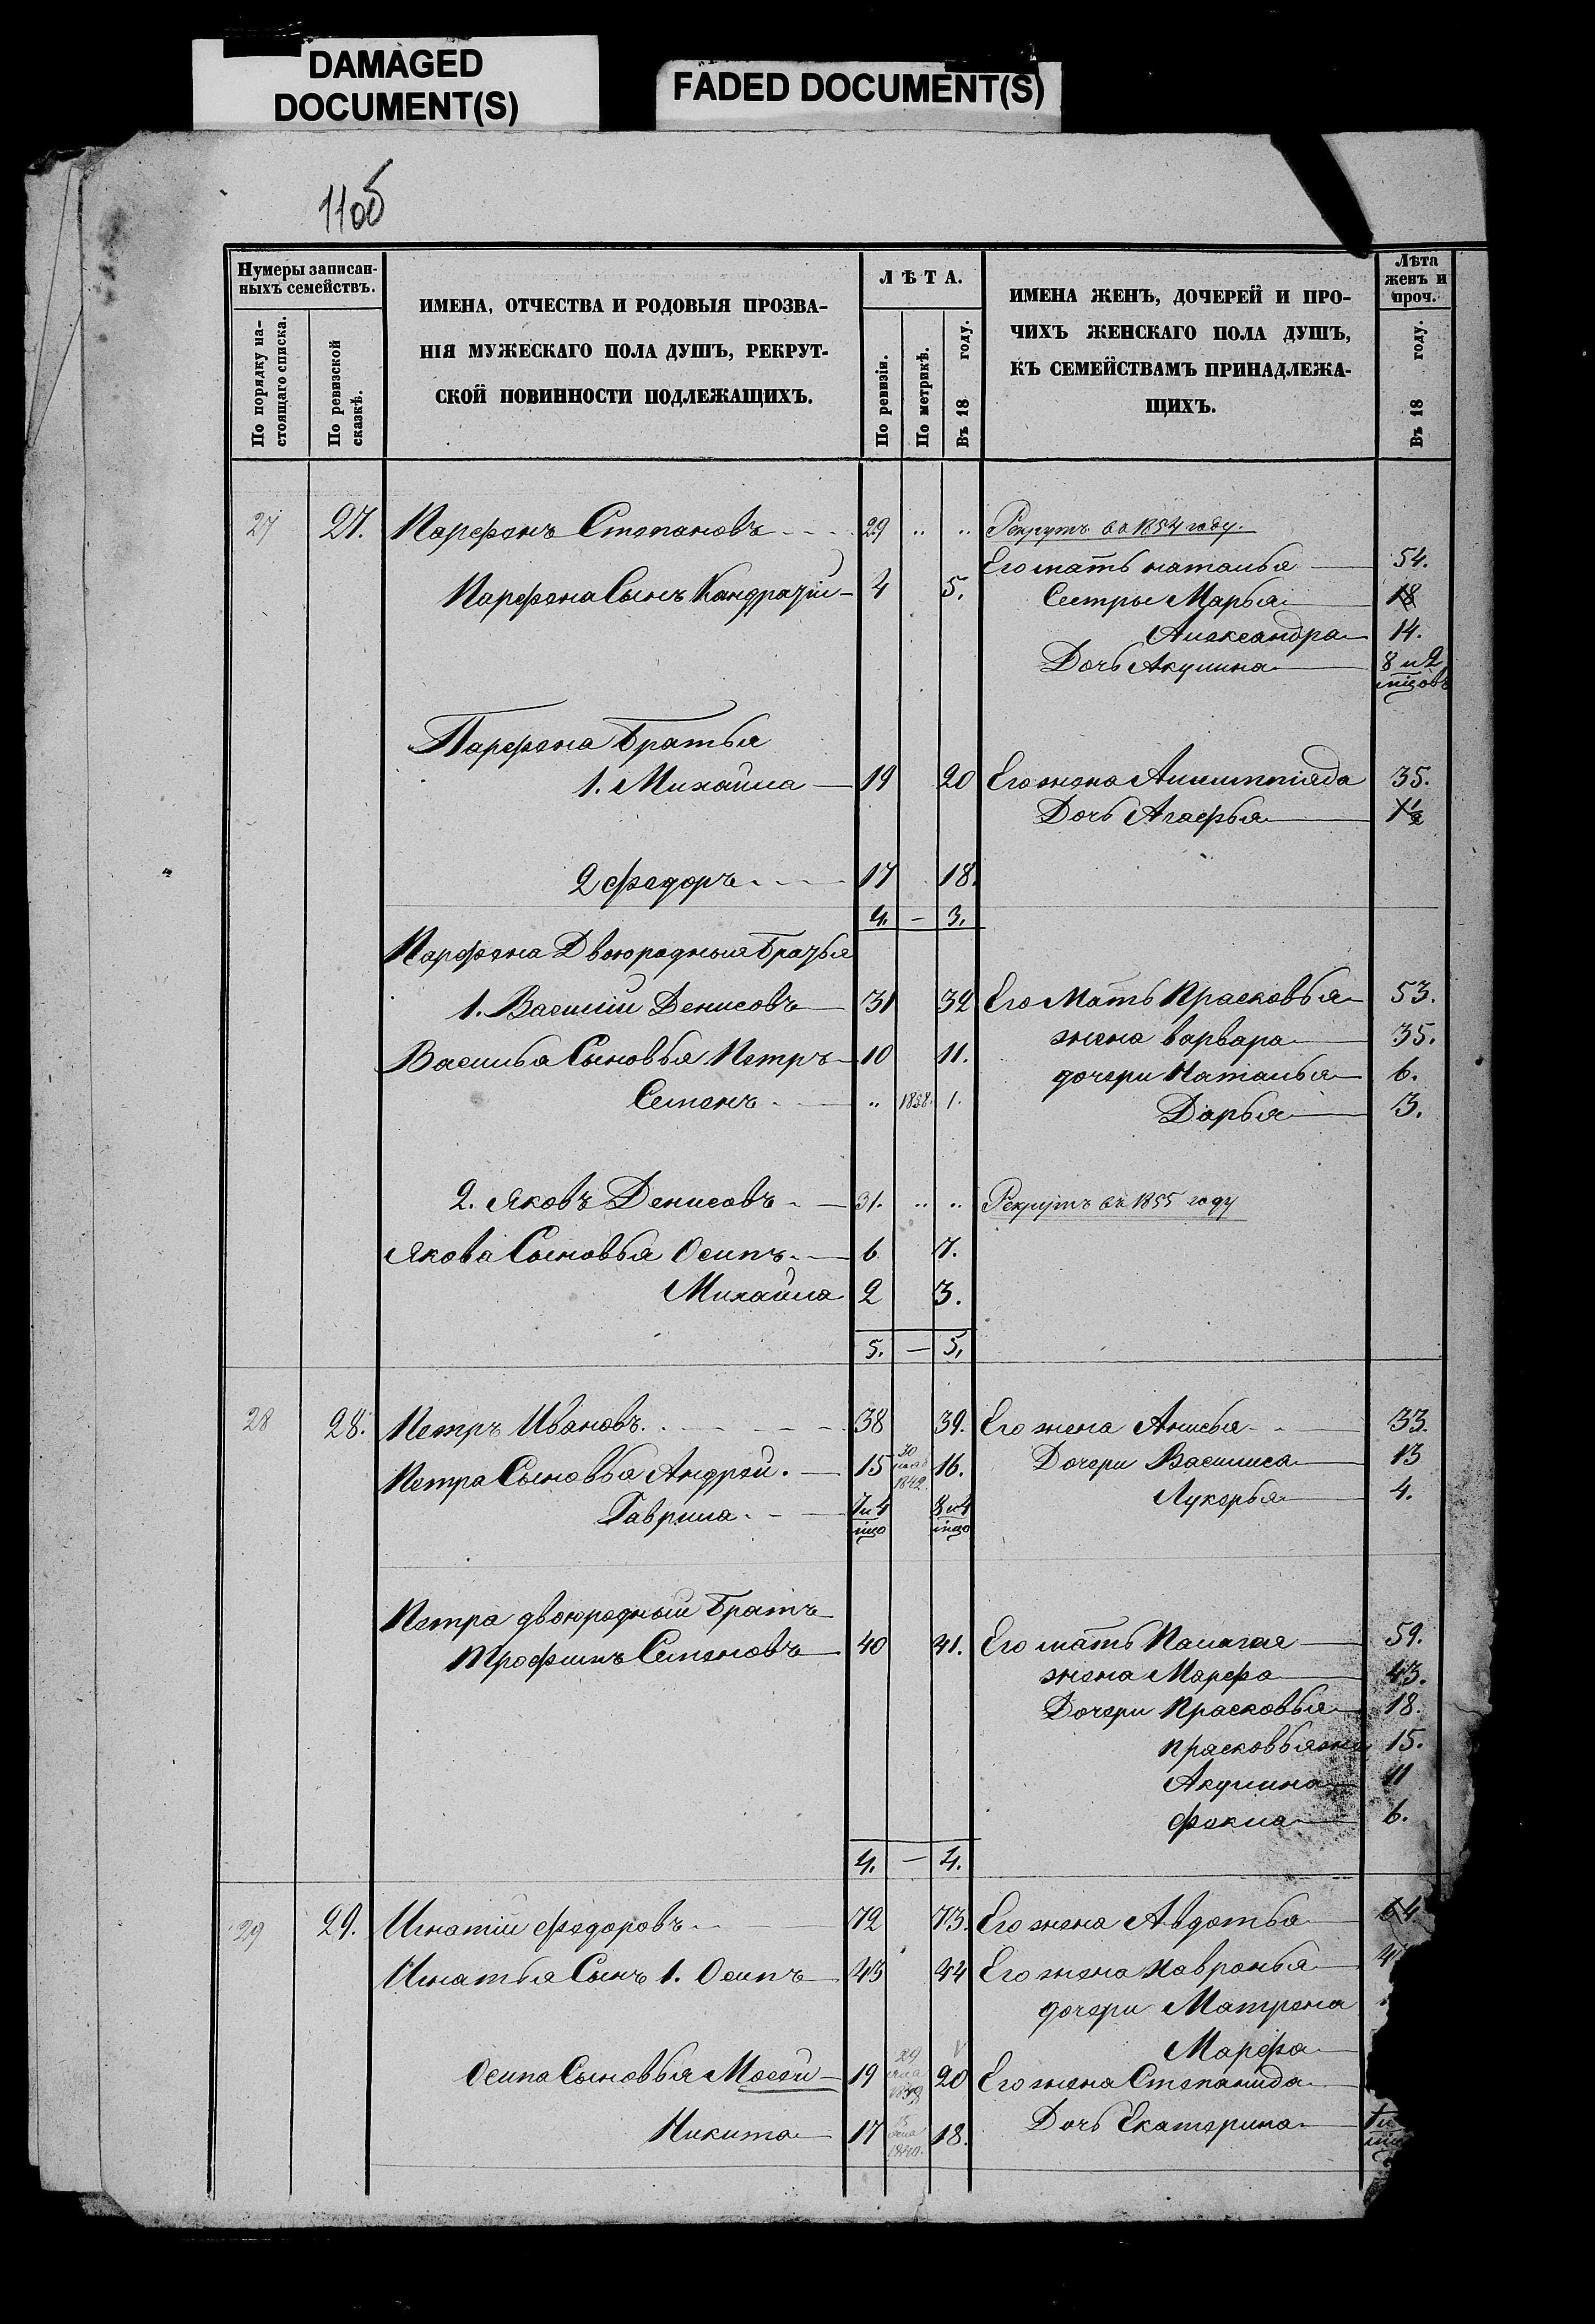 DAMAGED
DOCUMENT(S)
FADED DOCUMENT(S)
110об
Нумеры записан-
ныхъ семействъ.
По порядку на-
стоящаго списка.
По ревизской
сказкѣ.
ИМЕНА, ОТЧЕСТВА И РОДОВЫЯ ПРОЗВА-
НІЯ МУЖЕСКАГО ПОЛА ДУШЪ, РЕКРУТ-
СКОЙ ПОВИННОСТИ ПОДЛЕЖАЩИХЪ.
ЛѢТА.
По ревизіи.
По метрикѣ.
Въ 18 году.
ИМЕНА ЖЕНЪ, ДОЧЕРЕЙ И ПРО-
ЧИХЪ ЖЕНСКАГО ПОЛА ДУШЪ,
КЪ СЕМЕЙСТВАМЪ ПРИНАДЛЕЖА-
ЩИХЪ.
Лѣта
женъ и
проч.
Въ 18 году.
27 27. Парфенъ Степановъ 29 " " Рекрутъ въ 1854 году.
Его мать наталья 54.
Парфена Сынъ Кандратій 4 5. Сестры Марья 18
Александра 14.
Дочь Акулина 8 и 2
мцовъ
Парфена Братья
1. Михайла 19 20 Его жена Олимпіяда 35.
Дочь Агафья 1½
2 федоръ 17 18.
4. — 3.
Парфена Двоюродныя Братья
1. Василій Денисовъ 31 32 Его Мать Прасковья 53.
жена варвара 35.
Василья Сыновья Петръ 10 11.
дочери Наталья 6.
Семенъ " 1858. 1.
Дарья 3.
2. Яковъ Денисовъ 31. " " Рекрутъ въ 1855 году
Якова Сыновья Осипъ 6 7.
Михайла 2 3.
5. — 5.
28 28. Петръ Ивановъ 38 39. Его жена Анисья 33.
Петра Сыновья Андрей 15 1842. 16. Дочери Василиса 13
Гаврила 7 и 4 8 и 4 Лукерья 4.
мцо мцо
Петра двоюродный Братъ
Трофимъ Семеновъ 40 41. Его мать Палагея 59.
жена Марфа 43.
Дочери Прасковья 18.
прасковья 15.
Акулина 11
фекла 6.
4. — 4.
29 29. Игнатій федоровъ 72 73. Его жена Авдотья 64
Игнатья Сынъ 1. Осипъ 43 44 Его жена хавронья
дочери Матрена
Марфа
Осипа Сыновья Мосей 19 29 20 Его жена Степанида
Никита 17 15 1840. 18. Дочь Екатерина